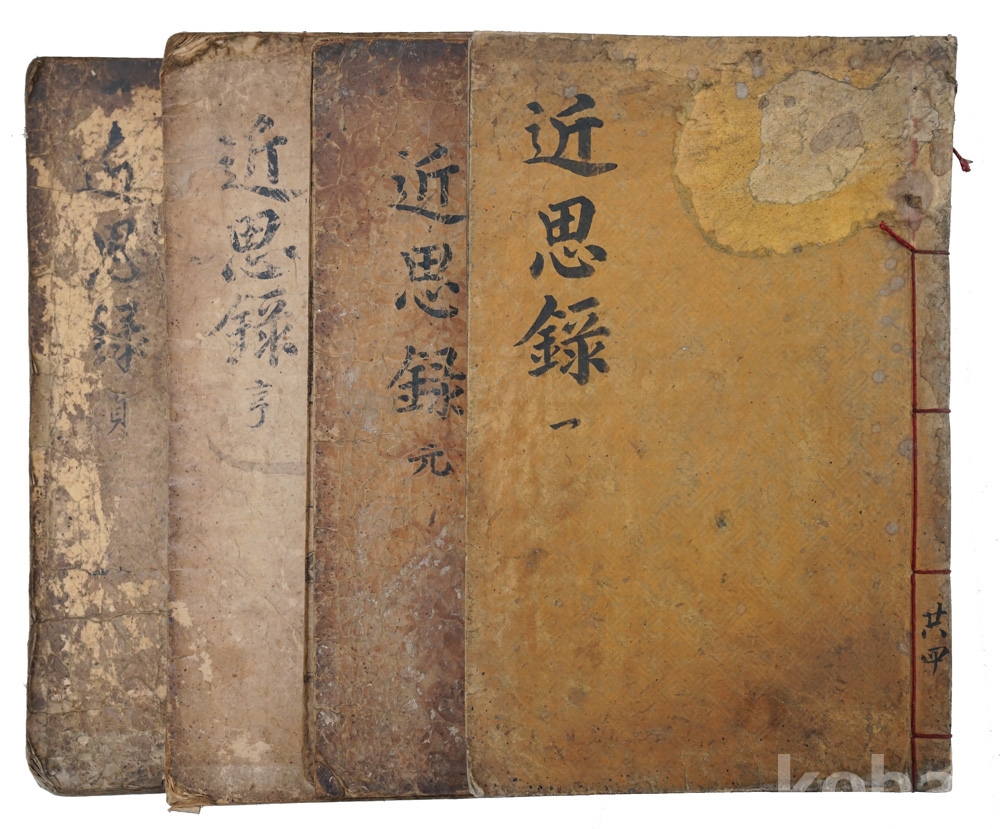 近思錄 一
共四
近思錄 元
近思錄 亨
近思錄 貞
koba